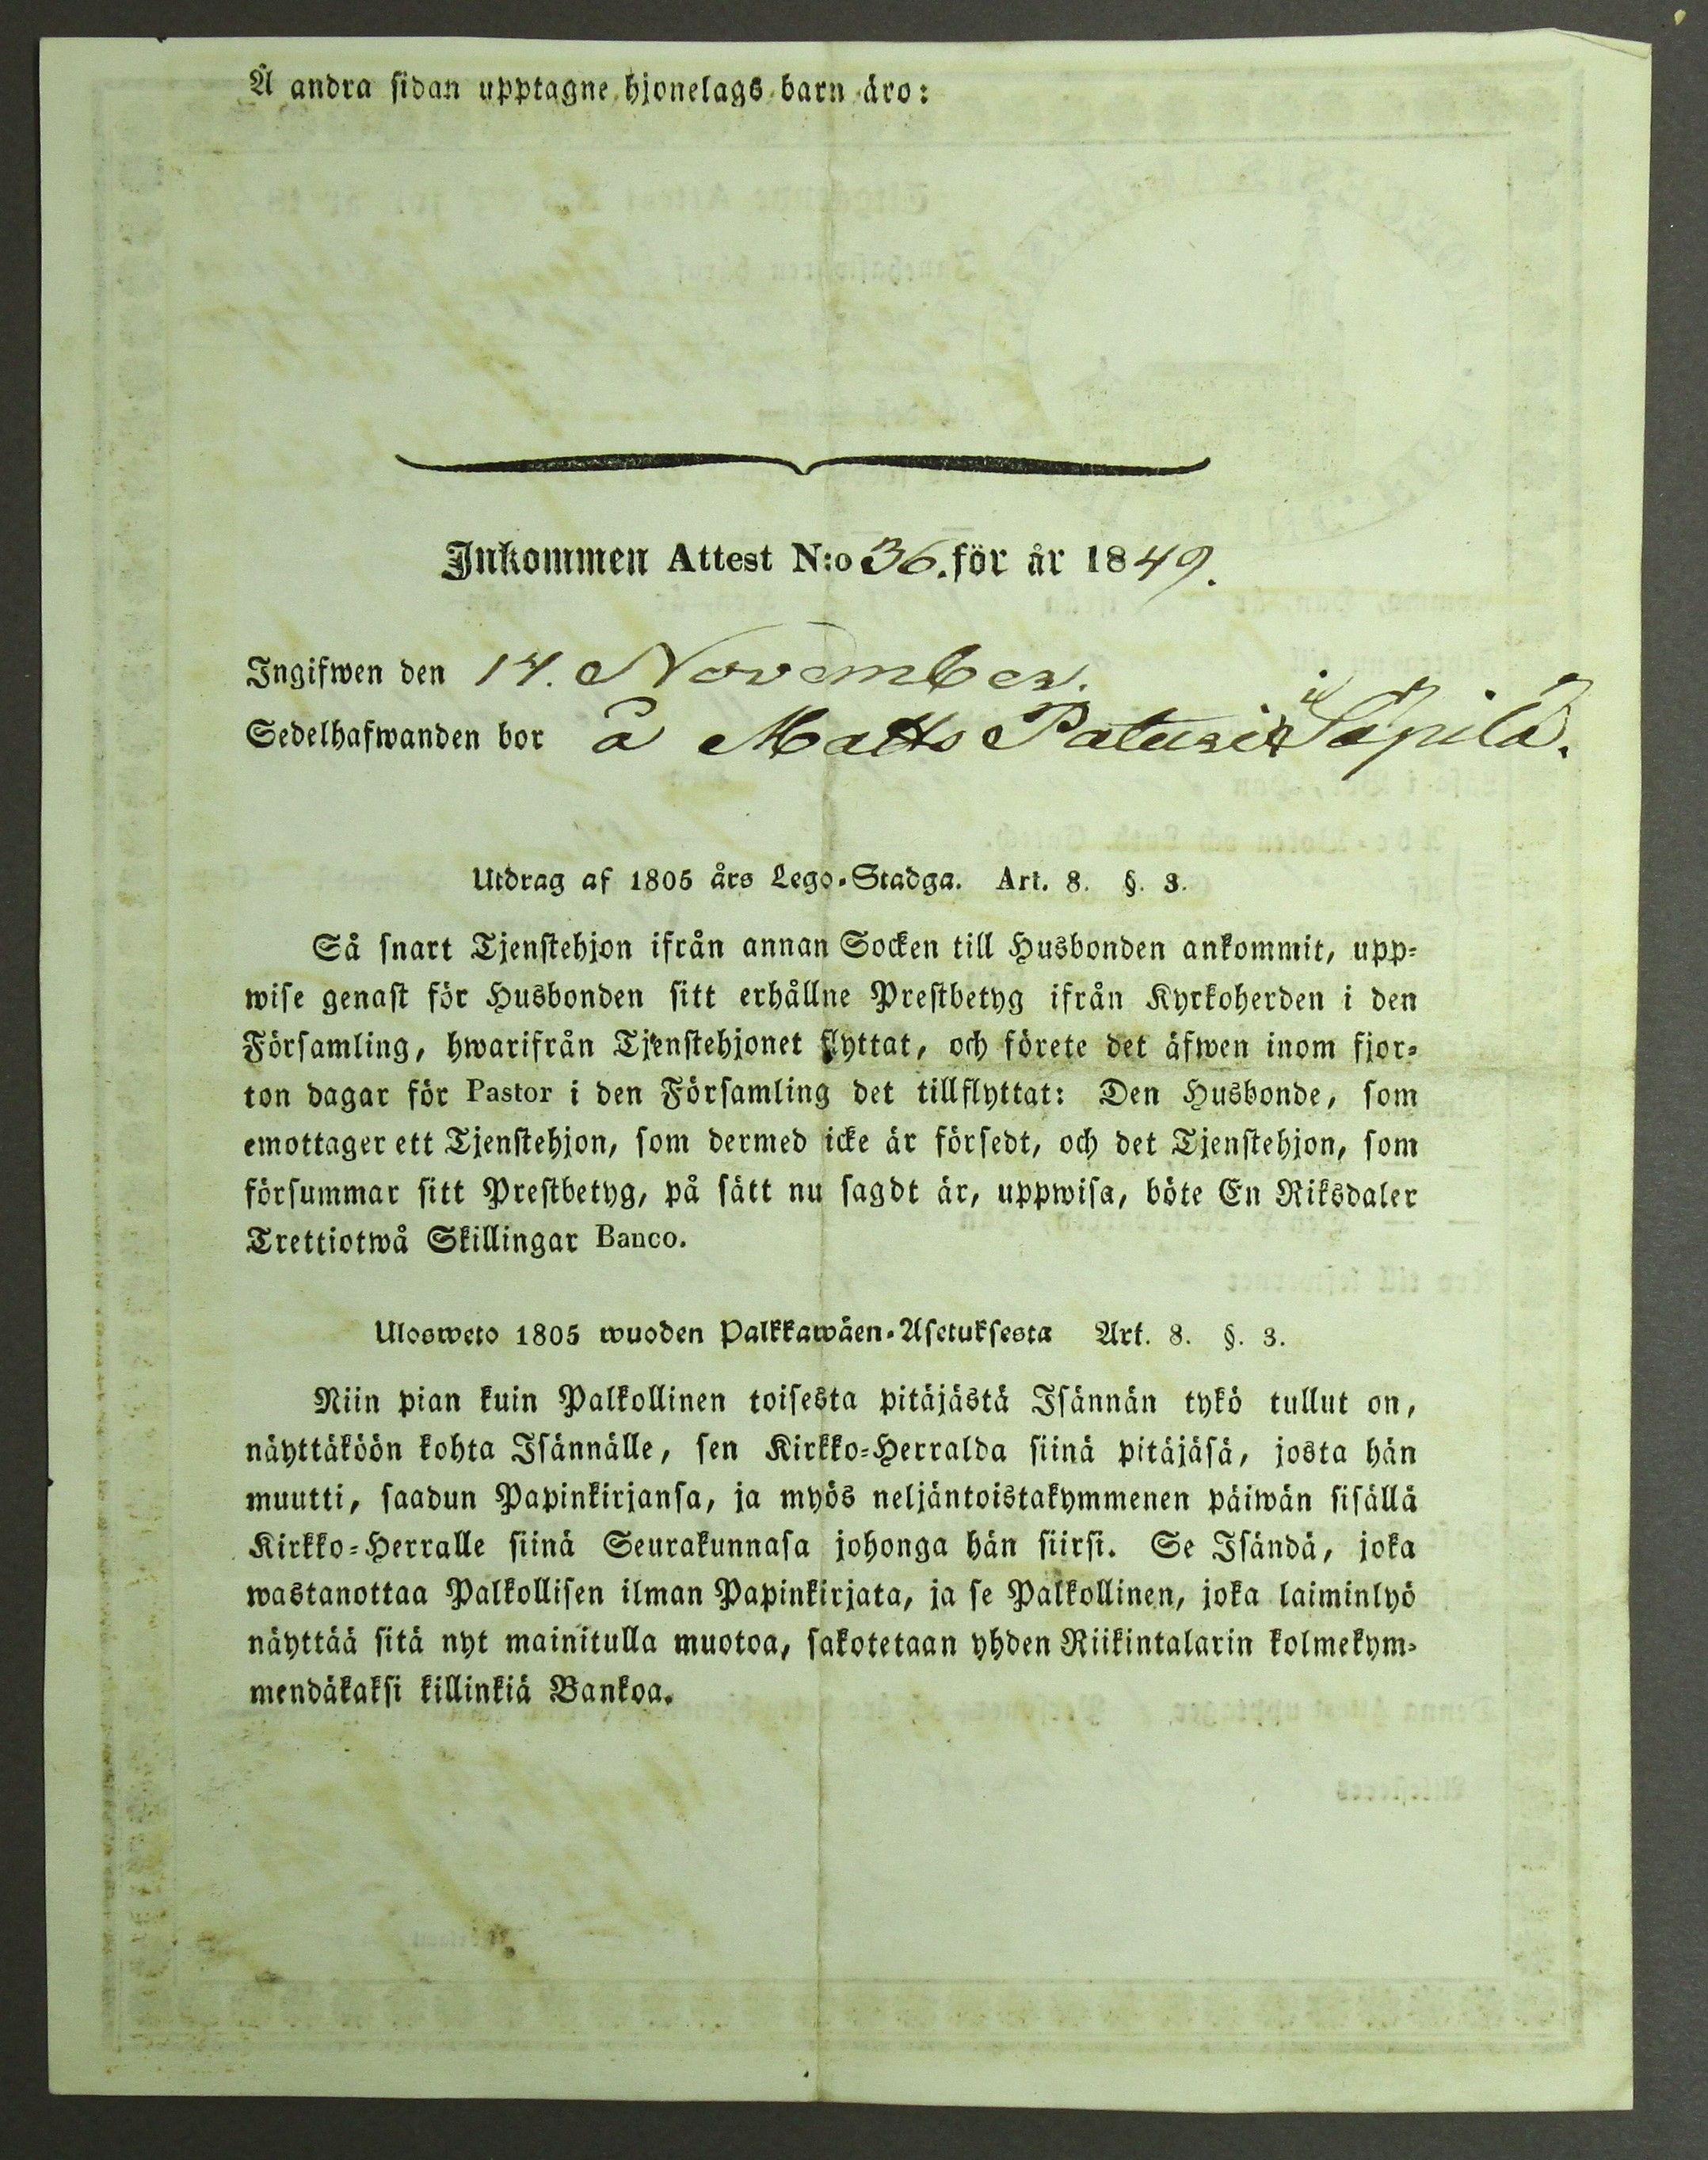 Å andra sidan upptagne hjonelags barn äro:
Inkommen Attest N:o 36. för år 1849.
Ingifwen den 14. November.
Sedelhafwanden bor å Matts Paturi Säpilä.
Utdrag af 1805 års Lego-Stadga. Art. 8. §. 3.
Så snart Tjenstehjon ifrån annan Socken till Husbonden ankommit, upp-
wise genast för Husbonden sitt erhållne Prestbetyg ifrån Kyrkoherden i den
Församling, hwarifrån Tjenstehjonet flyttat, och förete det äfwen inom fjor-
ton dagar för Pastor i den Församling det tillflyttat: Den Husbonde, som
emottager ett Tjenstehjon, som dermed icke är försedt, och det Tjenstehjon, som
försummar sitt Prestbetyg, på sätt nu sagdt är, uppwisa, böte En Riksdaler
Trettiotwå Skillingar Banco.
Ulosweto 1805 wuoden Palkkawäen-Asetuksesta Art. 8. §. 3.
Niin pian kuin Palkollinen toisesta pitäjästä Isännän tykö tullut on,
näyttäköön kohta Isännälle, sen Kirkko-Herralda siinä pitäjäsä, josta hän
muutti, saadun Papinkirjansa, ja myös neljäntoistakymmenen päiwän sisällä
Kirkko-Herralle siinä Seurakunnasa johonga hän siirsi. Se Isändä, joka
wastanottaa Palkollisen ilman Papinkirjata, ja se Palkollinen, joka laiminlyö
näyttää sitä nyt mainitulla muotoa, sakotetaan yhden Riikintalarin kolmekym-
mendäkaksi killinkiä Bankoa.